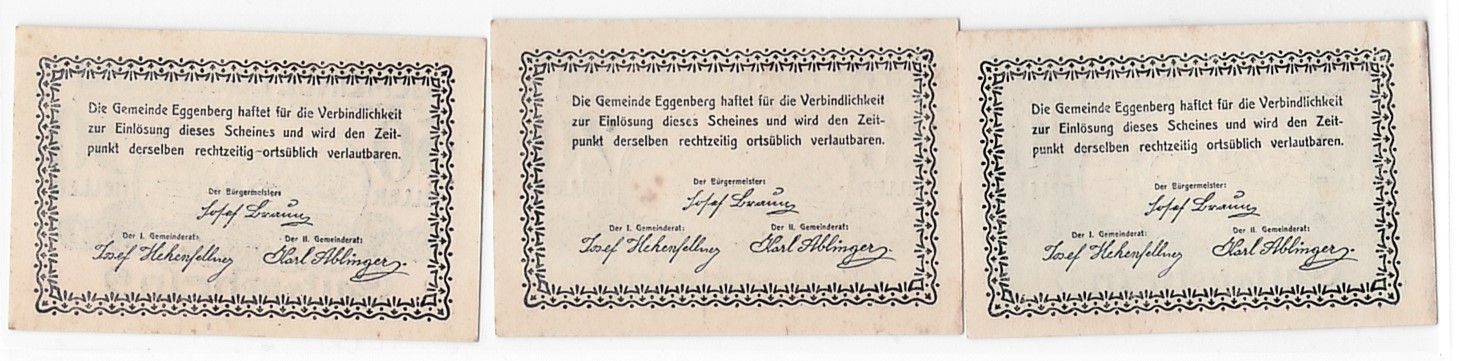 Die Gemeinde Eggenberg haftet für die Verbindlichkeit
zur Einlösung dieses Scheines und wird den Zeit-
punkt derselben rechtzeitig ortsüblich verlautbaren.
Der Bürgermeister:
Josef Braun
Der I. Gemeinderat:
Der II. Gemeinderat:
Josef Hehenfellner
Karl Ablinger
Die Gemeinde Eggenberg haftet für die Verbindlichkeit
zur Einlösung dieses Scheines und wird den Zeit-
punkt derselben rechtzeitig ortsüblich verlautbaren.
Der Bürgermeister:
Josef Braun
Der I. Gemeinderat:
Der II. Gemeinderat:
Josef Hehenfellner
Karl Ablinger
Die Gemeinde Eggenberg haftet für die Verbindlichkeit
zur Einlösung dieses Scheines und wird den Zeit-
punkt derselben rechtzeitig ortsüblich verlautbaren.
Der Bürgermeister:
Josef Braun
Der I. Gemeinderat:
Der II. Gemeinderat:
Josef Hehenfellner
Karl Ablinger